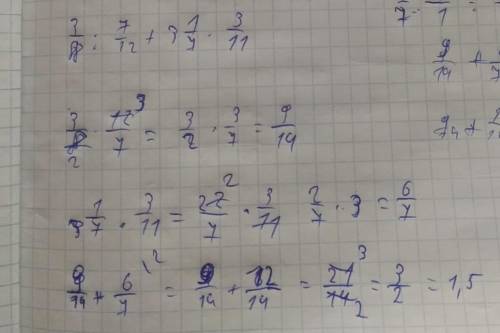 3/8 : 7/12 + 3 1/7 · 3/11
3/8 2 · 12/7 3 = 3/2 · 3/7 = 9/14
3 1/7 · 3/11 = 22/7 2 · 3/11 2/7 · 3 = 6/7
9/14 + 6/7 \2 = 9/14 + 12/14 = 21/14 3 2 = 3/2 = 1,5